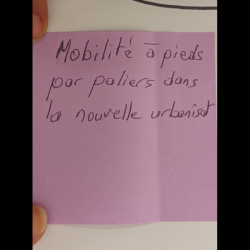 Mobilité à pieds
par paliers dans
la nouvelle urbanisat